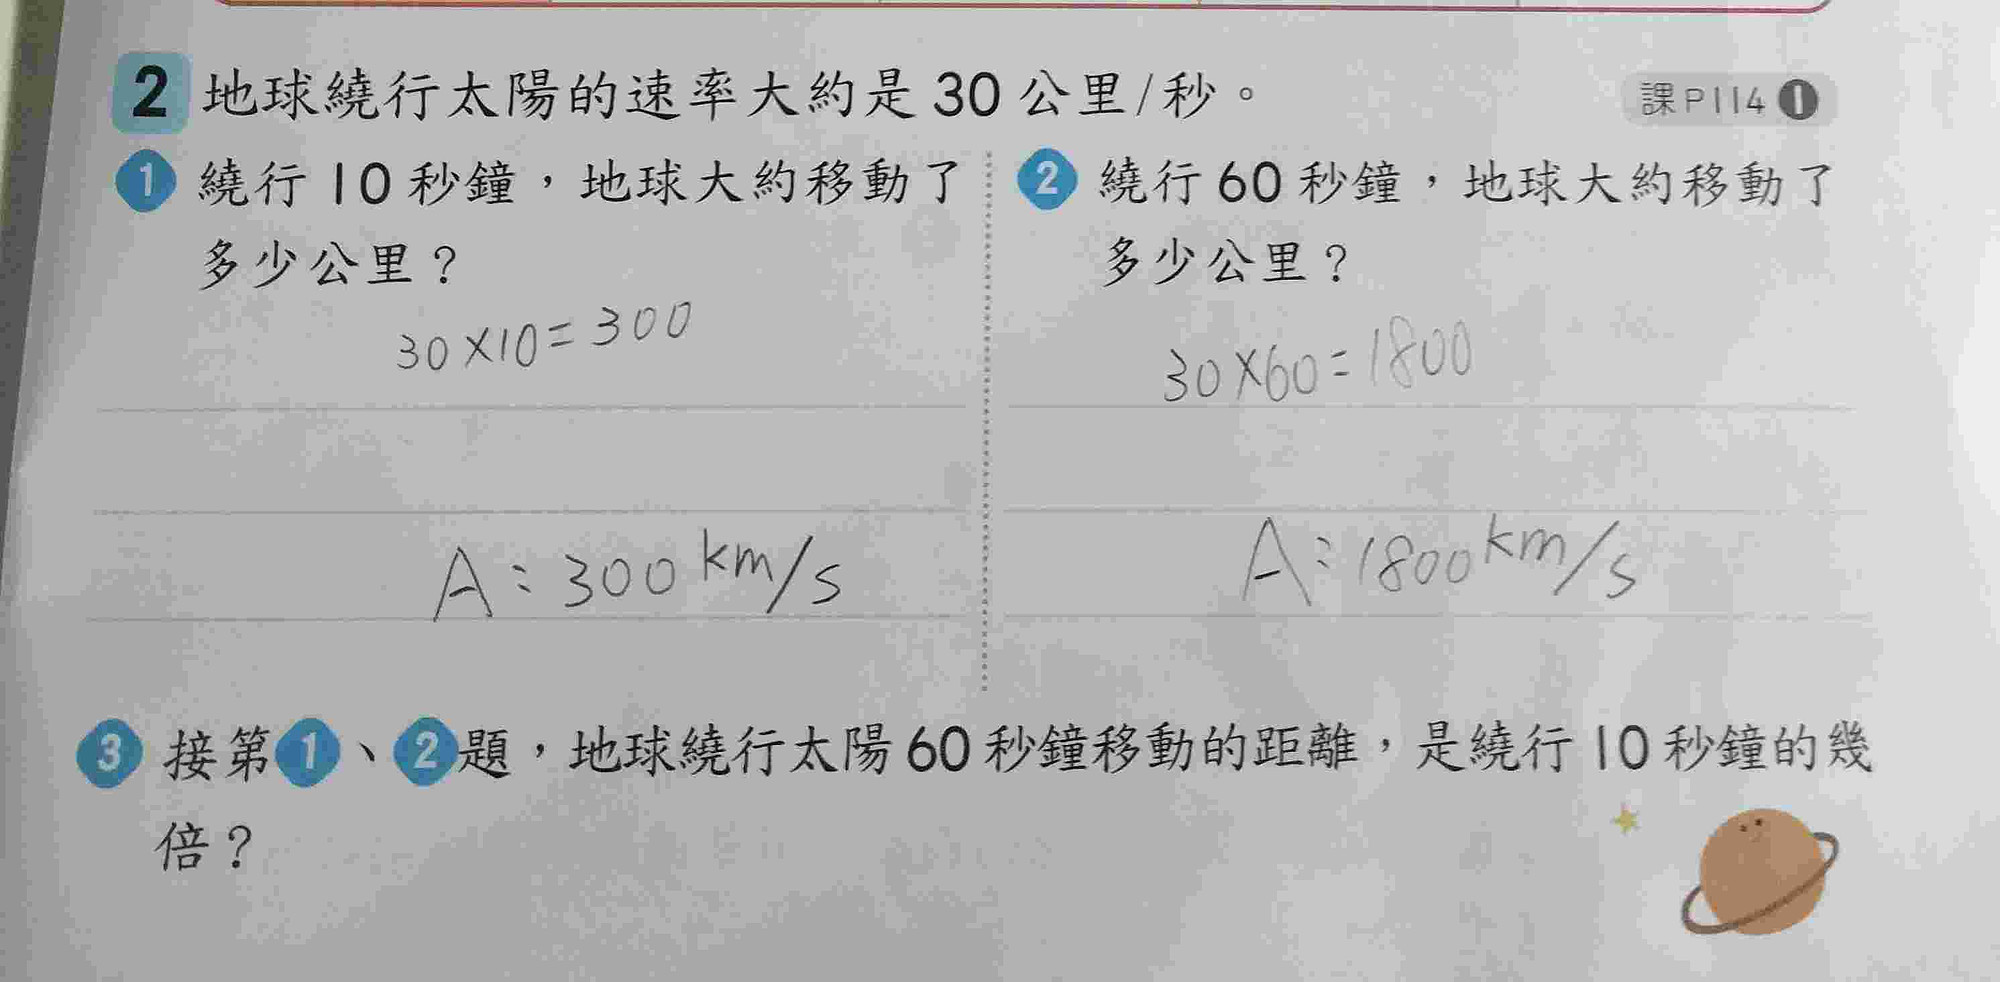 2 地球繞行太陽的速率大約是30公里/秒。 課P114 1
1 繞行10秒鐘，地球大約移動了
多少公里？
30×10=300
A:300km/s
2 繞行60秒鐘，地球大約移動了
多少公里？
30×60=1800
A:1800km/s
3 接第1、2題，地球繞行太陽60秒鐘移動的距離，是繞行10秒鐘的幾
倍？